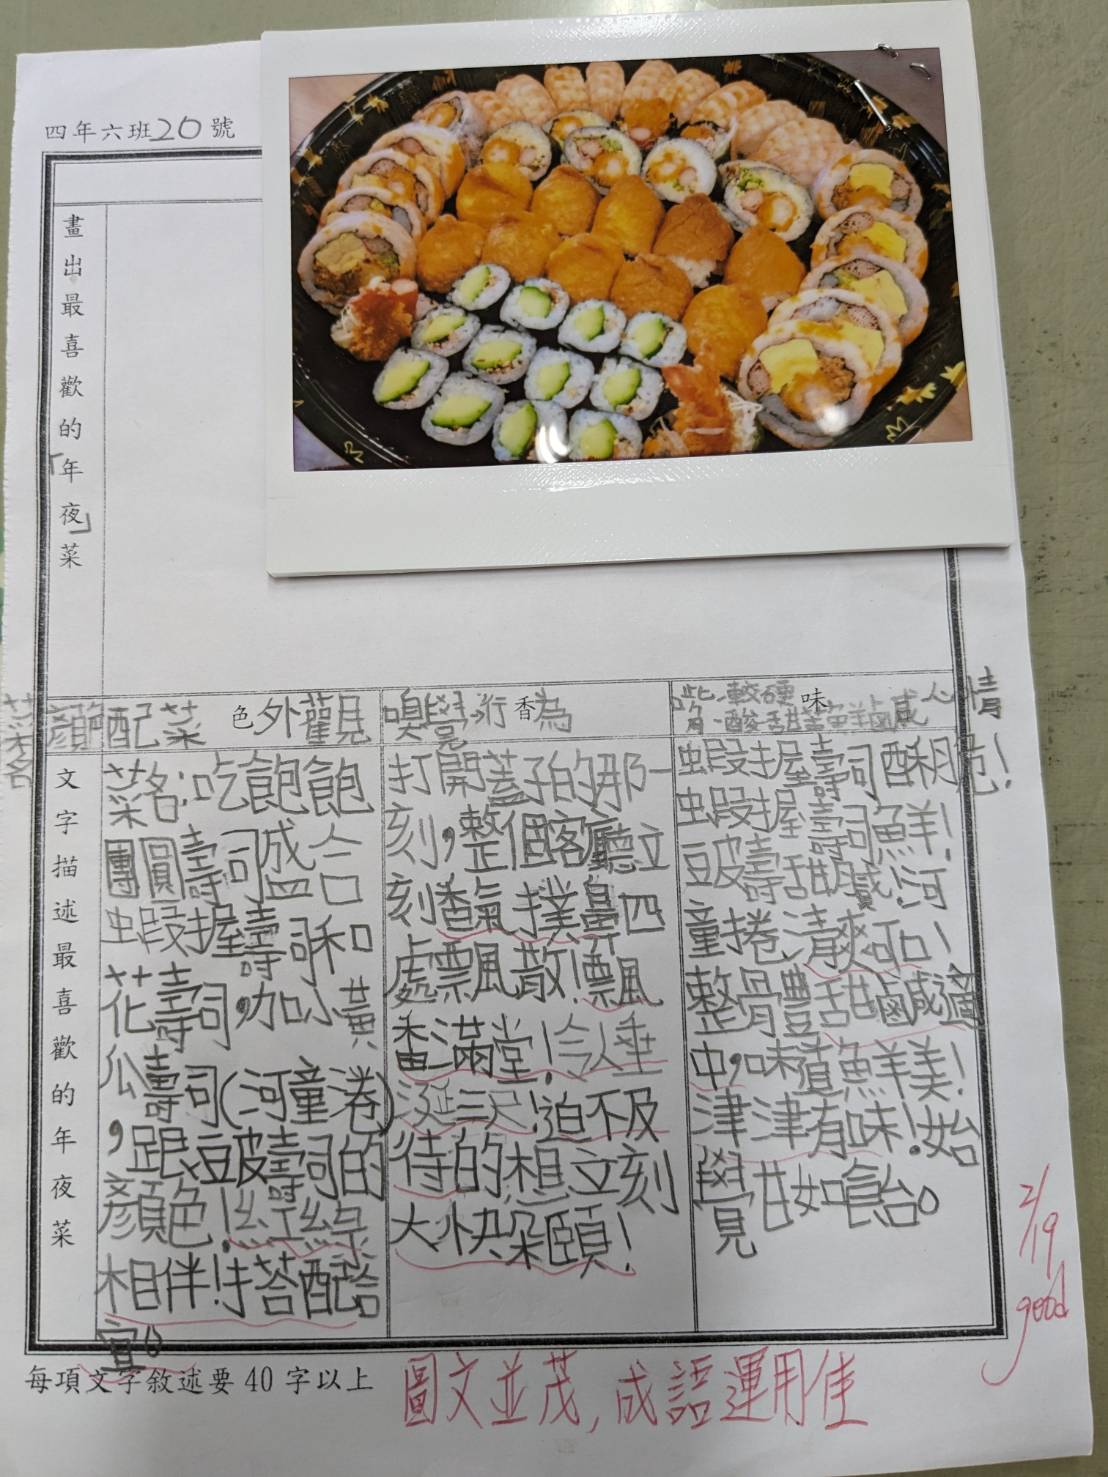 四年六班20號
畫出最喜歡的「年夜」菜
菜名
顏配菜
色
外觀
嗅覺
行
香
為
味
心情
文字描述最喜歡的年夜菜
菜名:吃飽飽
團圓壽司盛合
蝦握壽司和
花壽司,加小黃
瓜壽司(河童捲)
,跟豆皮壽司的
顏色!紅綠
相伴!搭配合
宜。
打開蓋子的那一
刻,整個客廳立
刻香氣撲鼻四
處飄散!飄
香滿堂!令人垂
涎三尺!迫不及
待的想立刻
大快朵頤!
蝦握壽司酥脆!
蝦握壽司鮮!
豆皮壽甜膩!河
童捲清爽可口!
整體甜鹹適
中,味道鮮美!
津津有味!始
覺甘如飴。
每項文字敘述要40字以上
圖文並茂,成語運用佳
2/19
good